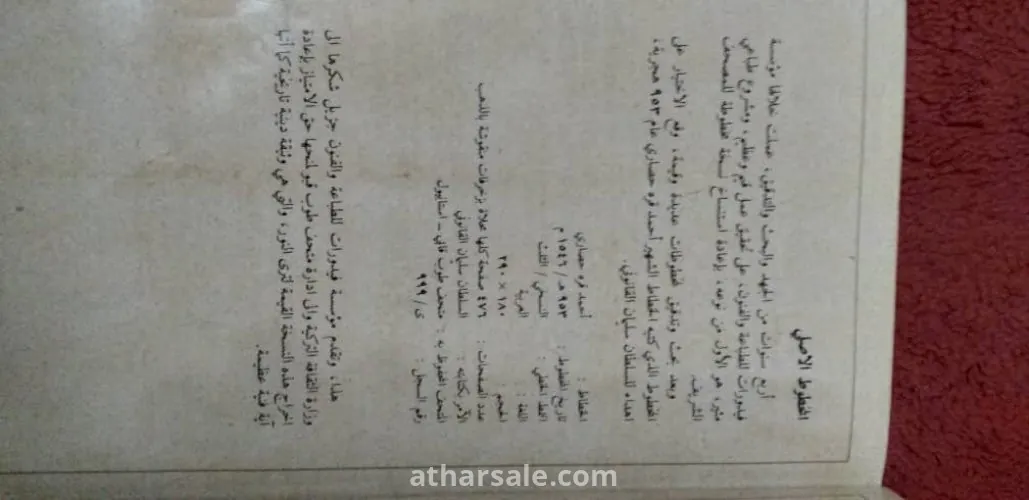 المخطوط الاصلي
أربع سنوات من الجهد والبحث والتدقيق، عملت خلالها مؤسسة
فيدورات للطباعة والفنون، على تحقيق عمل قيم وعظيم، ومشروع طباعي
مثير، هو الأول من نوعه، بإعادة استنساخ نسخة مخطوطة للمصحف
الشريف.
وبعد بحث وتدقيق لمخطوطات عديدة وقيمة، وقع الاختيار على
المخطوط الذي كتبه الخطاط الشهير أحمد قره حصاري عام ٩٥٣ هجرية،
اهداء للسلطان سليمان القانوني.
الخطاط : أحمد قره حصاري
تاريخ المخطوط : ٩٥٣ هـ / ١٥٤٦ م
الخط الخطي : النسخي / الثلث
اللغة : العربية
الحجم : ١٨٠ × ٢٩٠
عدد الصفحات : ٤٧٦ صفحة كلها محلاة بزخرفات منقوشة بالذهب
الآمر بكتابته : السلطان سليمان القانوني
المتحف المخطوط به : متحف طوب قابي - استانبول
رقم السجل : ى/ ٩٩٩
هذا، وتقدم مؤسسة فيدورات للطباعة والفنون جزيل شكرها الى
وزارة الثقافة التركية والى ادارة متحف طوب قبو لمنحها حق الامتياز بإعادة
اخراج هذه النسخة القيمة لترى النور، والتي هي وثيقة دينية تاريخية كما أنها
آية فنية عظيمة.
atharsale.com